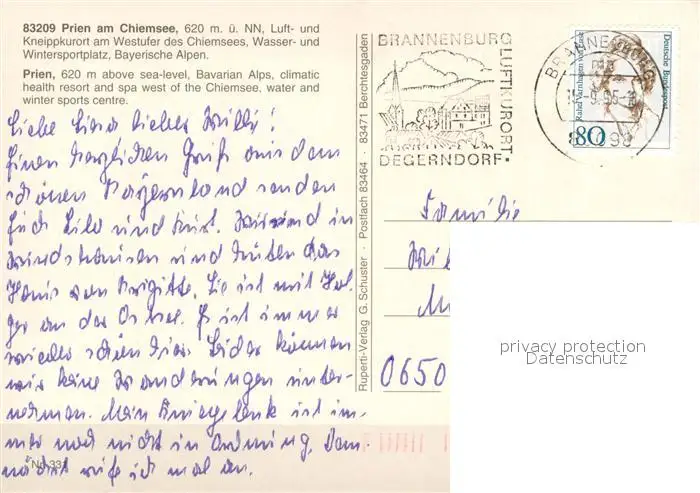 83209 Prien am Chiemsee, 620 m. ü. NN, Luft- und
Kneippkurort am Westufer des Chiemsees, Wasser- und
Wintersportplatz, Bayerische Alpen.
Prien, 620 m above sea-level, Bavarian Alps, climatic
health resort and spa west of the Chiemsee, water and
winter sports centre.
Liebe lieber Willi!
Einen herzlichen Gruß aus dem
schönen Bayernland senden
Euch Lilo und Kurt. Wir sind in
und hüten das
Haus von Brigitte. Sie ist mit Hol-
ger an der Ostsee. Es ist immer
wieder schön hier. Leider können
wir keine Wanderungen unter-
nehmen. Mein Kniegelenk ist im-
mer noch nicht in Ordnung. Dem-
nächst rufe ich mal an.
Nr. 331
Ruperti-Verlag G. Schuster · Postfach 83464 · 83471 Berchtesgaden
BRANNENBURG
LUFTKURORT
DEGERNDORF
BRANNENBURG
Rahel Varnhagen von Ense
Deutsche Bundespost
80
Familie
0650
privacy protection
Datenschutz